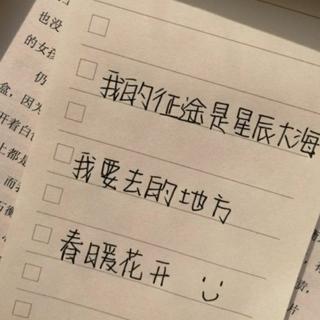 也没
的女孩
仍
盒,因为
开着白
上都是
而
我的征途是星辰大海
我要去的地方
春暖花开